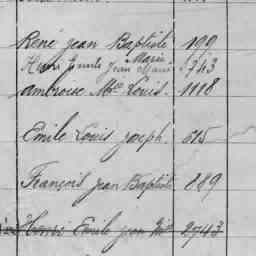 René Jean Baptiste 199
Marie
Henri Emile Jean Marie 2743
Ambroise Mie Louis. 1118
Emile Louis Joseph. 615
François Jean Baptiste 889
Henri Emile Jean Mie 2743